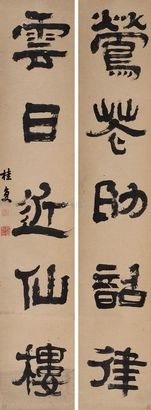 鶯花助韶律
雲日近仙樓
桂馥